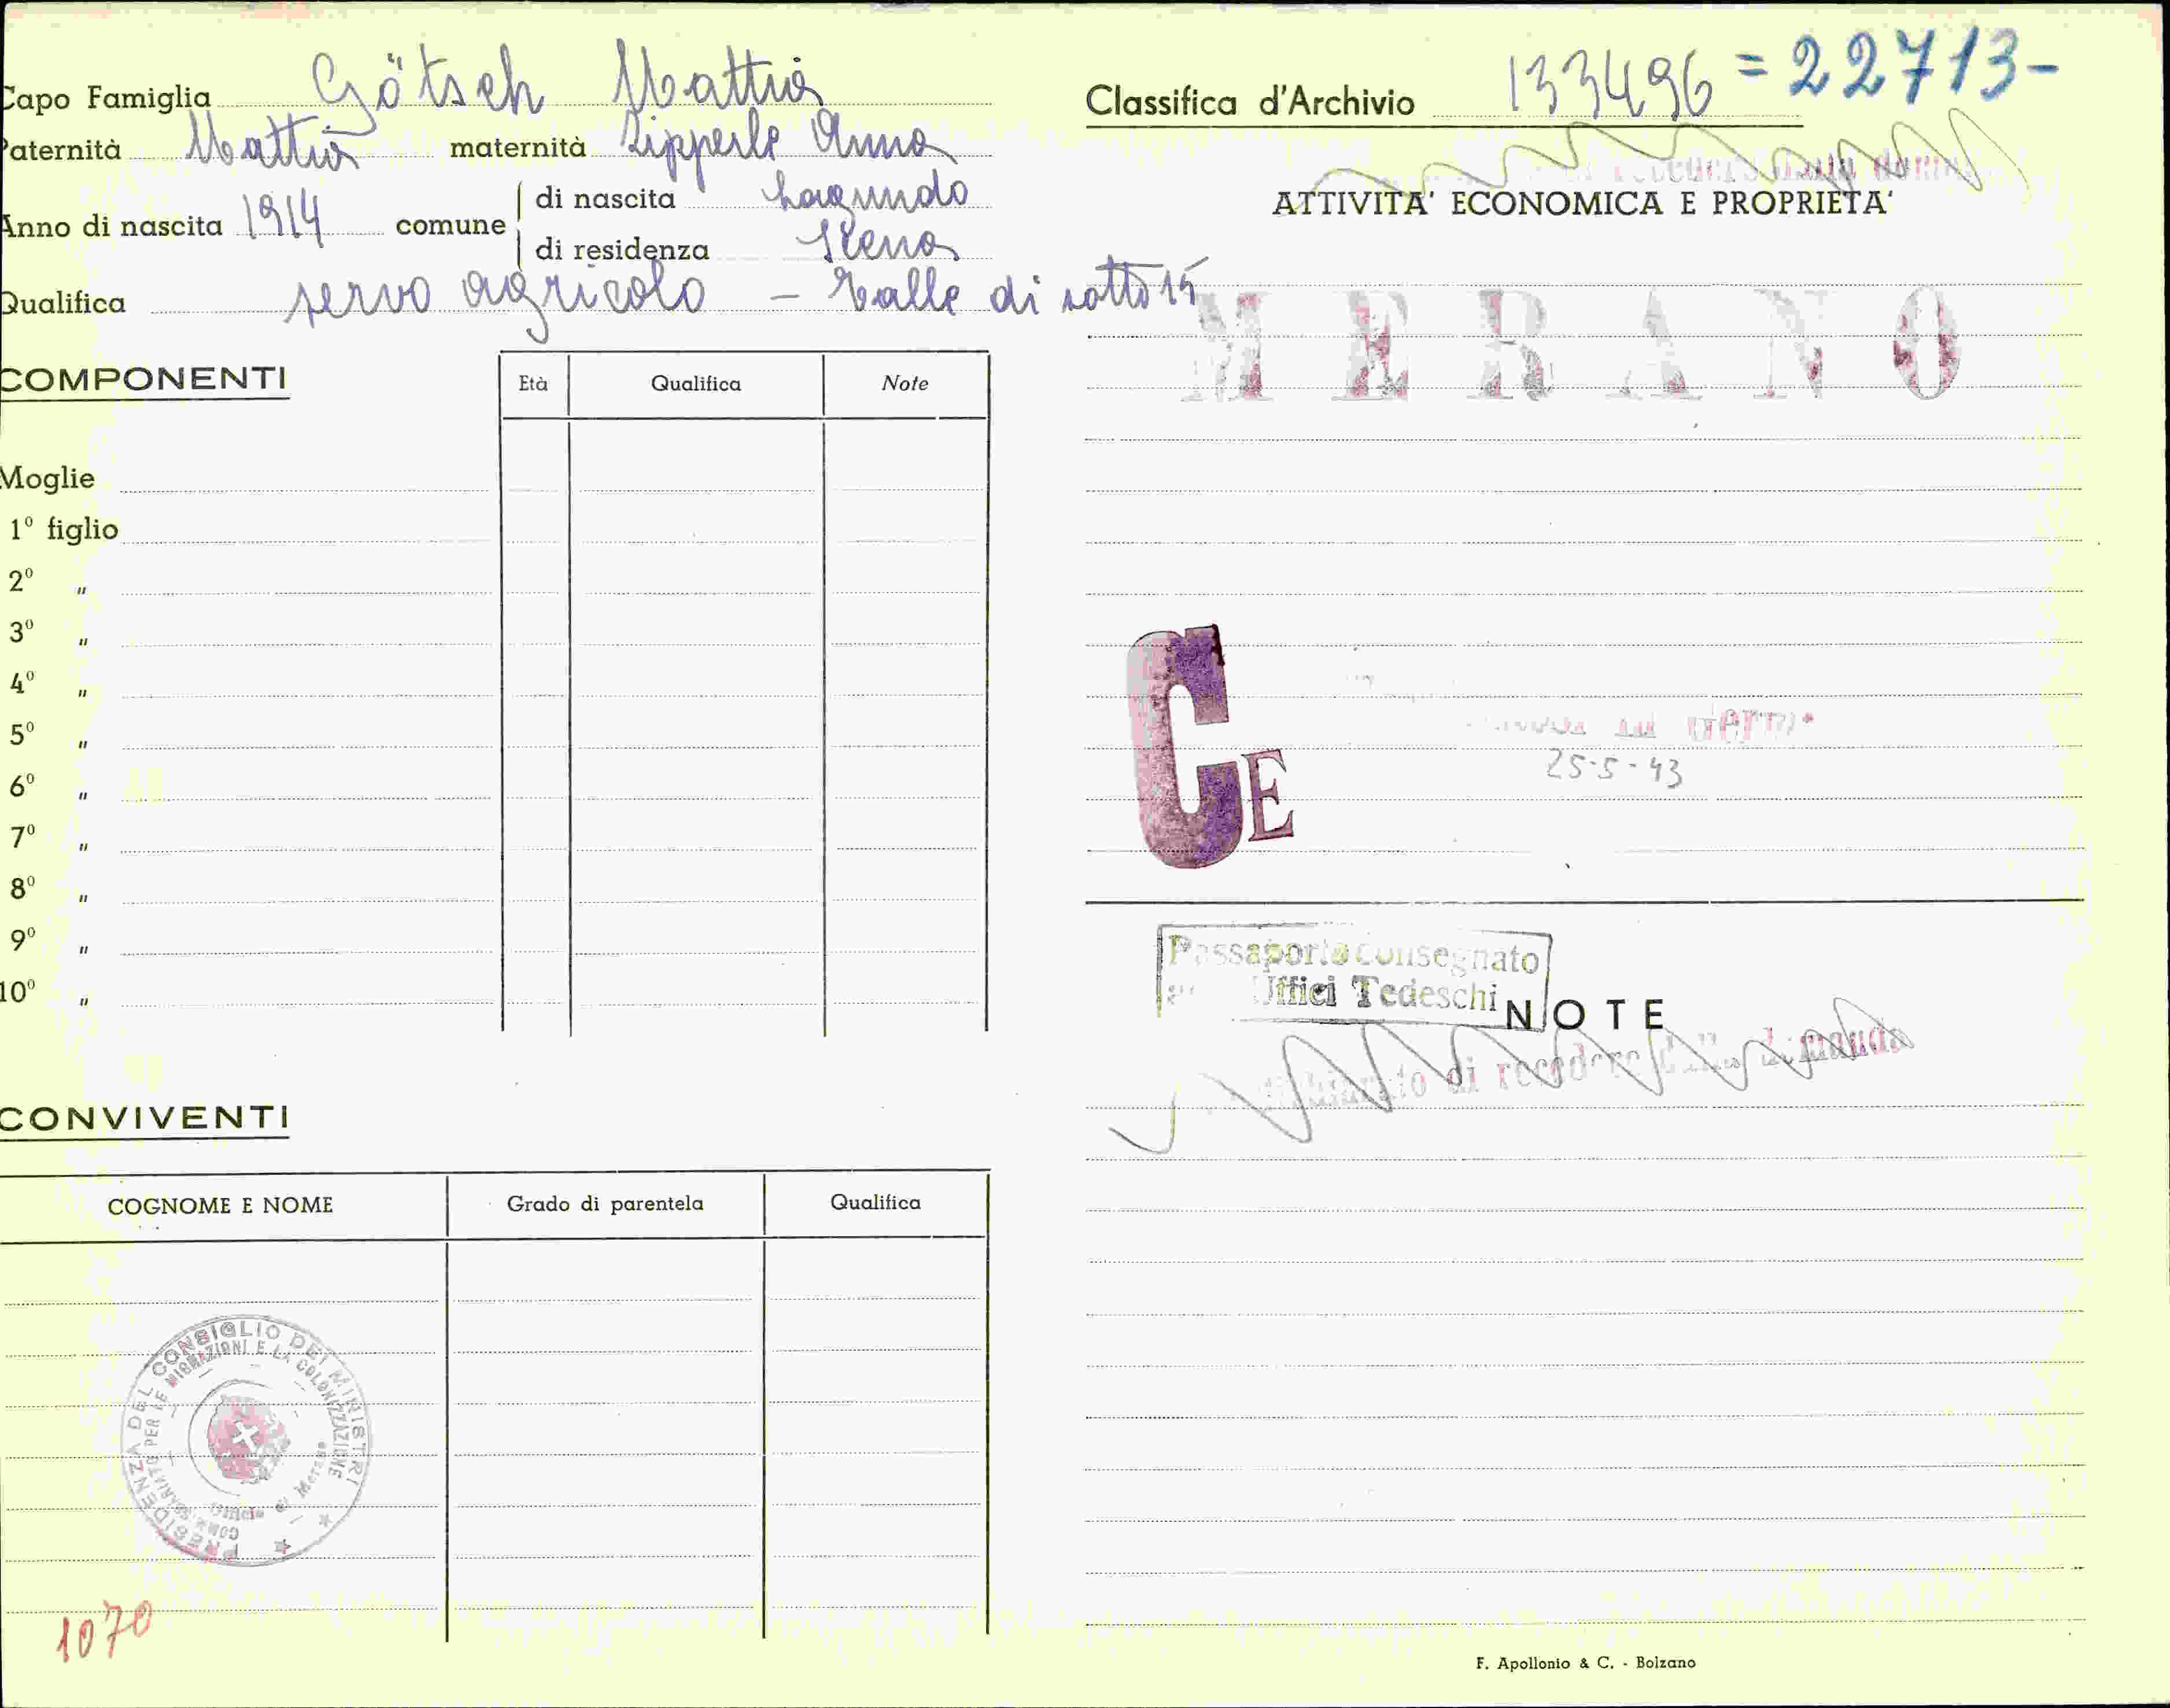 Capo Famiglia Götsch Mattia
Paternità Mattia maternità Zipperle Anna
Anno di nascita 1914 comune di nascita Lagundo
di residenza Scena
Qualifica servo agricolo - Valle di sotto 15
COMPONENTI
Età Qualifica Note
Moglie
1° figlio
2° "
3° "
4° "
5° "
6° "
7° "
8° "
9° "
10° "
CONVIVENTI
COGNOME E NOME Grado di parentela Qualifica
PRESIDENZA DEL CONSIGLIO DEI MINISTRI
COMMISSARIATO PER LE MIGRAZIONI E LA COLONIZZAZIONE
Ufficio di Merano
1070
Classifica d'Archivio 133496 = 22713-
ATTIVITA' ECONOMICA E PROPRIETA'
MERANO
CE
25-5-43
Passaporto consegnato
Uffici Tedeschi
NOTE
di recedere dalla domanda
F. Apollonio & C. - Bolzano